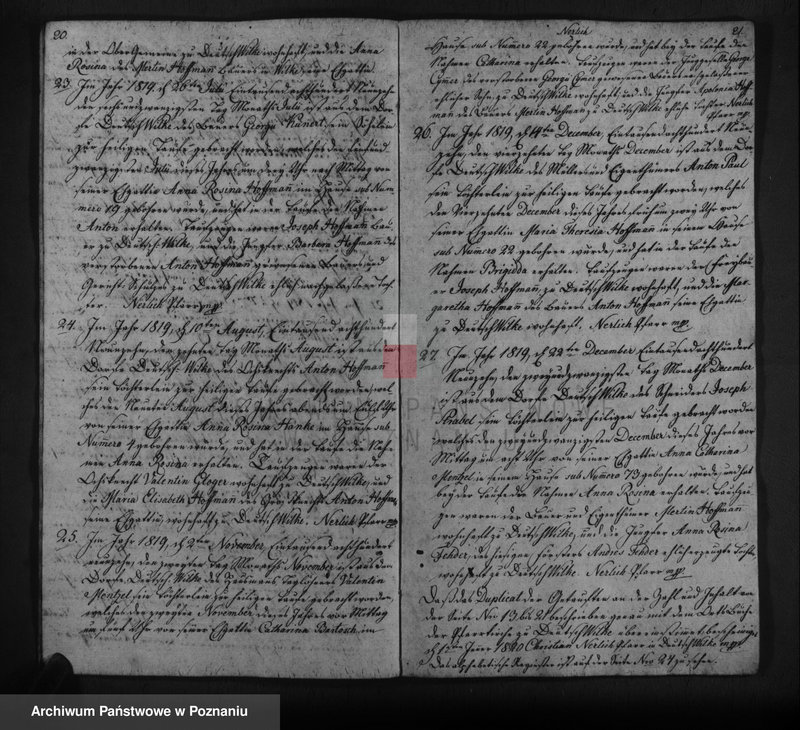 20.
in der Ober Gemeine zu Deutsch Wilke wohnhaft, und die Anna
Rosina des Mertin Hoffmañ Bauers in Wilke seine Ehgattin
23. Im Jahr 1819, d. 26ten Juli Eintausendachthundert Neunze-
hen den sechsundzwanzigsten Tag Monaths Juli ist aus dem Dor-
fe Deutsch Wilke des Bauers George Kunert, ein Söhnlein
zur heiligen Taufe gebracht worden, welches den
zwanzigsten Juli dieses Jahres um drey Uhr nach Mittag von
seiner Ehgattin Anna Rosina Hoffmañ im Hause sub Num-
mero 19 gebohren wurde, und hat in der Taufe den Nahmen
Anton erhalten. Taufzeugen waren Joseph Hoffmañ Bau-
er zu Deutsch Wilke, und die Jungfer Barbara Hoffmañ des
verstorbenen Anton Hoffmañ gewesenen Bauers und
Gericht zu Deutsch Wilke ehlich nachgelassene Toch-
ter. Nerlich Pfarr mpp.
24. Im Jahr 1819, d. 10ten August, Eintausend achthundert
Neunzehn, den zehnten Tag Monaths August ist aus dem
Dorfe Deutsch Wilke des Anton Hoffmañ
ein Töchterlein zur heiligen Taufe gebracht worden, wel-
ches den Neunten August dieses Jahres abends um Uhr
von seiner Ehgattin Anna Rosina Hanke im Hause sub
Numero 4 gebohren wurde, und hat in der Taufe den Nah-
men Anna Rosina erhalten. Taufzeugen waren der
Valentin Gloger wohnhaft zu Deutsch Wilke, und
die Maria Elisabeth Hoffmañ des Anton Hoffmañ
seine Ehgattin, wohnhaft zu Deutsch Wilke. Nerlich Pfarr mpp
25. Im Jahr 1819, d. 2ten November Eintausend achthundert
neunzehn, den zweyten Tag Monaths November ist aus dem
Dorfe Deutsch Wilke des Taglöhners Valentin
Mentzel ein Töchterlein zur heiligen Taufe gebracht worden
welches den zweyten November dieses Jahres vor Mittag
um fünf Uhr von seiner Ehgattin Catharina Bartsch im
Nerlich 21.
Hause sub Numero 22 gebohren wurde, und hat bey der Taufe den
Nahmen Catharina erhalten. Taufzeugen waren der Junggeselle George
des verstorbenen George gewesenen Bauers
ehlicher Sohn, zu Deutsch Wilke wohnhaft, und die Jungfer Apolonia Hoff-
mañ des Bauers Mertin Hoffmañ zu Deutsch Wilke ehliche Tochter Nerlich
Pfarr mpp.
26. Im Jahr 1819, d. 14ten December, Eintausendachthundert Neun-
zehn, den vierzehnten Tag Monaths December ist aus dem Dor-
fe Deutsch Wilke des Müllers und Eigenthümers Anton Paul
ein Töchterlein zur heiligen Taufe gebracht worden, welches
den Vierzehnten December dieses Jahres früh um zwey Uhr von
seiner Ehgattin Maria Theresia Hoffmañ in seinem Hause
sub Numero 22 gebohren wurde, und hat in der Taufe den
Nahmen Brigida erhalten. Taufzeugen waren der
Joseph Hoffmañ, zu Deutsch Wilke wohnhaft, und der Mar-
garetha Hoffmañ des Bauers Anton Hoffmañ seine Ehgattin
zu Deutsch Wilke wohnhaft. Nerlich Pfarr mpp.
27. Im Jahr 1819, d. 22ten December Eintausendachthundert
Neunzehn, den zweyundzwanzigsten Tag Monaths December
ist aus dem Dorfe Deutsch Wilke des Schneiders Joseph
Strabel sein Töchterlein zur heiligen Taufe gebracht worden
welches den zweyundzwanzigsten December dieses Jahres vor
Mittag um acht Uhr von seiner Ehgattin Anna Catharina
Mentzel in seinem Hause sub Numero 73 gebohren wurde, und hat
bey der Taufe den Nahmen Anna Rosina erhalten. Taufzeu-
gen waren der Bauer und Eigenthümer Mertin Hoffmañ
wohnhaft zu Deutsch Wilke, und die Jungfer Anna Rosina
Fehder, des hiesigen Försters Andres Fehder Tochter
wohnhaft zu Deutsch Wilke. Nerlich Pfarr mpp.
Daß das Duplicat der Getauften an der Zahl und Inhalt von
der Seite Nro 13 bis 21 beschrieben genau mit dem
der Pfarrkirche zu Deutsch Wilke übereinstimmt bescheinigt
d. 1ten Jenner 1820 Christian Nerlich Pfarr in Deutsch Wilke mpp.
Das alphabetische Register ist auf der Seite Nro 24 zu sehen.
Archiwum Państwowe w Poznaniu